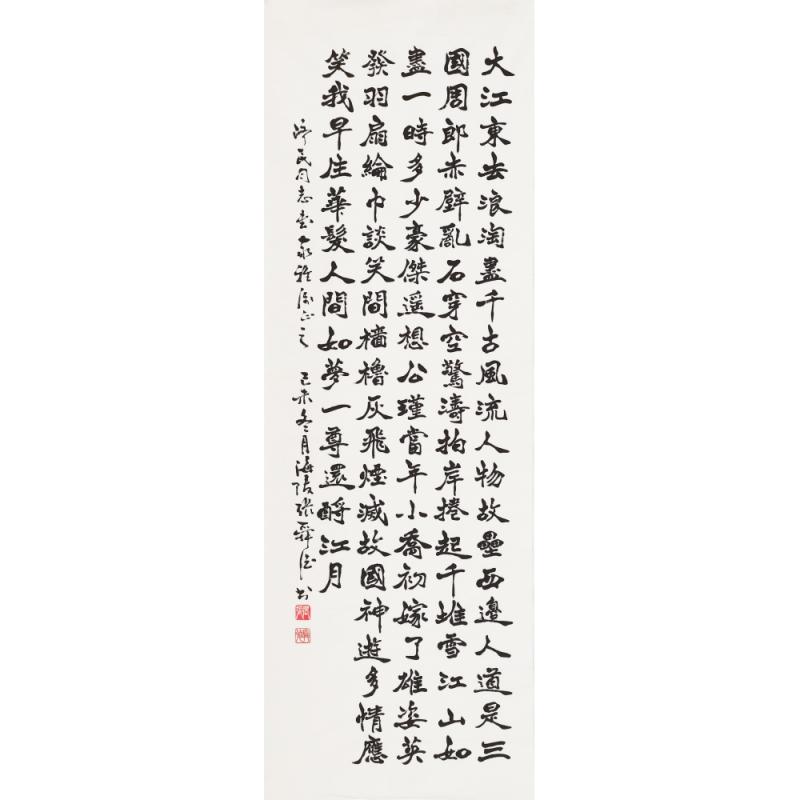 大江東去浪淘盡千古風流人物故壘西邊人道是三
國周郎赤壁亂石穿空驚濤拍岸捲起千堆雪江山如
畫一時多少豪傑遥想公瑾當年小喬初嫁了雄姿英
發羽扇綸巾談笑間檣櫓灰飛煙滅故國神遊多情應
笑我早生華髮人間如夢一尊還酹江月
民同志書家雅屬正之 己未冬月海陵張舜德书